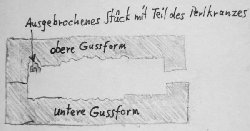 Ausgebrochenes Stück mit Teil des Perlkranzes
obere Gussform
untere Gussform